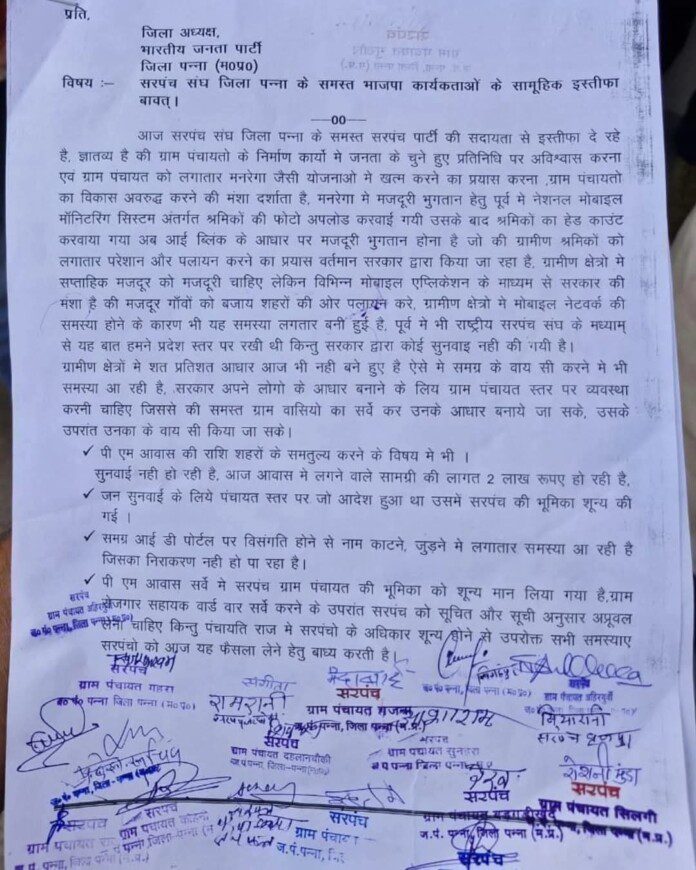 प्रति,
जिला अध्यक्ष,
भारतीय जनता पार्टी
जिला पन्ना (म०प्र०)
विषय :– सरपंच संघ जिला पन्ना के समस्त भाजपा कार्यकताओं के सामूहिक इस्तीफा
बावत्।
---00---
आज सरपंच संघ जिला पन्ना के समस्त सरपंच पार्टी की सदायता से इस्तीफा दे रहे
है, ज्ञातव्य है की ग्राम पंचायतो के निर्माण कार्यो मे जनता के चुने हुए प्रतिनिधि पर अविश्वास करना
एवं ग्राम पंचायत को लगातार मनरेगा जैसी योजनाओ मे खत्म करने का प्रयास करना ,ग्राम पंचायतो
का विकास अवरुद्ध करने की मंशा दर्शाता है, मनरेगा मे मजदूरी भुगतान हेतु पूर्व मे नेशनल मोबाइल
मॉनिटरिंग सिस्टम अंतर्गत श्रमिकों की फोटो अपलोड करवाई गयी उसके बाद श्रमिकों का हेड काउंट
करवाया गया अब आई ब्लिंक के आधार पर मजदूरी भुगतान होना है जो की ग्रामीण श्रमिकों को
लगातार परेशान और पलायन करने का प्रयास वर्तमान सरकार द्वारा किया जा रहा है, ग्रामीण क्षेत्रो मे
सप्ताहिक मजदूर को मजदूरी चाहिए लेकिन विभिन्न मोबाइल एप्लिकेशन के माध्यम से सरकार की
मंशा है की मजदूर गाँवों को बजाय शहरों की ओर पलायन करे, ग्रामीण क्षेत्रो मे मोबाइल नेटवर्क की
समस्या होने के कारण भी यह समस्या लगतार बनी हुई है, पूर्व मे भी राष्ट्रीय सरपंच संघ के मध्याम्
से यह बात हमने प्रदेश स्तर पर रखी थी किन्तु सरकार द्वारा कोई सुनवाइ नही की गयी है।
ग्रामीण क्षेत्रों मे शत प्रतिशत आधार आज भी नही बने हुए है ऐसे मे समग्र के वाय सी करने मे भी
समस्या आ रही है, सरकार अपने लोगो के आधार बनाने के लिय ग्राम पंचायत स्तर पर व्यवस्था
करनी चाहिए जिससे की समस्त ग्राम वासियो का सर्वे कर उनके आधार बनाये जा सके, उसके
उपरांत उनका के वाय सी किया जा सके।
✓ पी एम आवास की राशि शहरों के समतुल्य करने के विषय मे भी ।
सुनवाई नही हो रही है, आज आवास मे लगने वाले सामग्री की लागत 2 लाख रूपए हो रही है,
✓ जन सुनवाई के लिये पंचायत स्तर पर जो आदेश हुआ था उसमें सरपंच की भूमिका शून्य की
गई ।
✓ समग्र आई डी पोर्टल पर विसंगति होने से नाम काटने, जुड़ने मे लगातार समस्या आ रही है
जिसका निराकरण नही हो पा रहा है।
✓ पी एम आवास सर्वे मे सरपंच ग्राम पंचायत की भूमिका को शून्य मान लिया गया है,ग्राम
रोजगार सहायक वार्ड वार सर्वे करने के उपरांत सरपंच को सूचित और सूची अनुसार अप्रूवल
लेना चाहिए किन्तु पंचायति राज मे सरपंचो के अधिकार शून्य होने से उपरोक्त सभी समस्याए
सरपंचो को आज यह फैसला लेने हेतु बाध्य करती है।
सरपंच
ग्राम पंचायत
ज०पं० पन्ना, जिला पन्ना (म०प्र०)
ग्राम पंचायत गहरा
ज०पं० पन्ना जिला पन्ना (म०प्र०)
संगीता
रामरानी
सरपंच
ग्राम पंचायत
ज.पं.पन्ना, जिला पन्ना
राजाराम
सरपंच
ग्राम पंचायत
सियारानी
सरपंच
ग्राम पंचायत दहलानचौकी
सरपंच
ग्राम पंचायत
रोशनी
सरपंच
ग्राम पंचायत सिलगी
सरपंच
ग्राम पंचायत
ज.पं. पन्ना, जिला पन्ना (म.प्र.)
सरपंच
ग्राम पंचायत
सरपंच
ग्राम पंचायत
ज.पं.पन्ना,
सरपंच